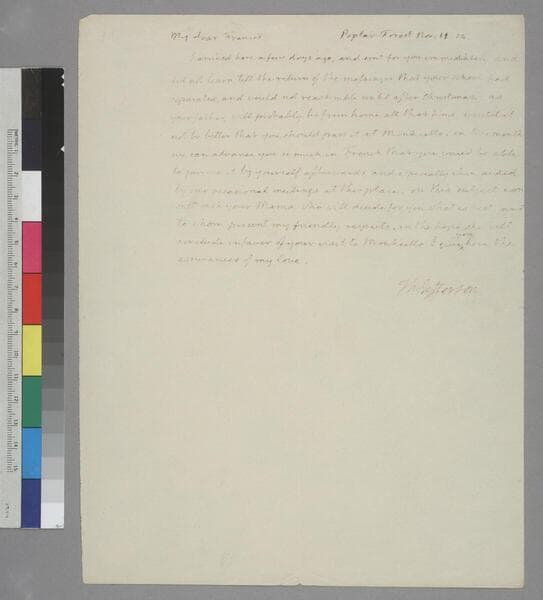 My dear Francis Poplar Forest Nov. 11
I arrived here a few days ago, and sent for you immediately, and
did not learn till the return of the messenger that your school had
separated and would not reassemble until after Christmas. as
your father will probably be from home all that time, would it
not be better that you should pass it at Monticello. in two months
we can advance you so much in French that you would be able
to pursue it by yourself afterwards and especially when aided
by our occasional meetings at this place. on this subject con-
sult your Mama who will decide for you what is best and
to whom present my friendly respects. in the hope she will
conclude in favor of your visit to Monticello I give you here the
assurances of my love.
Th: Jefferson